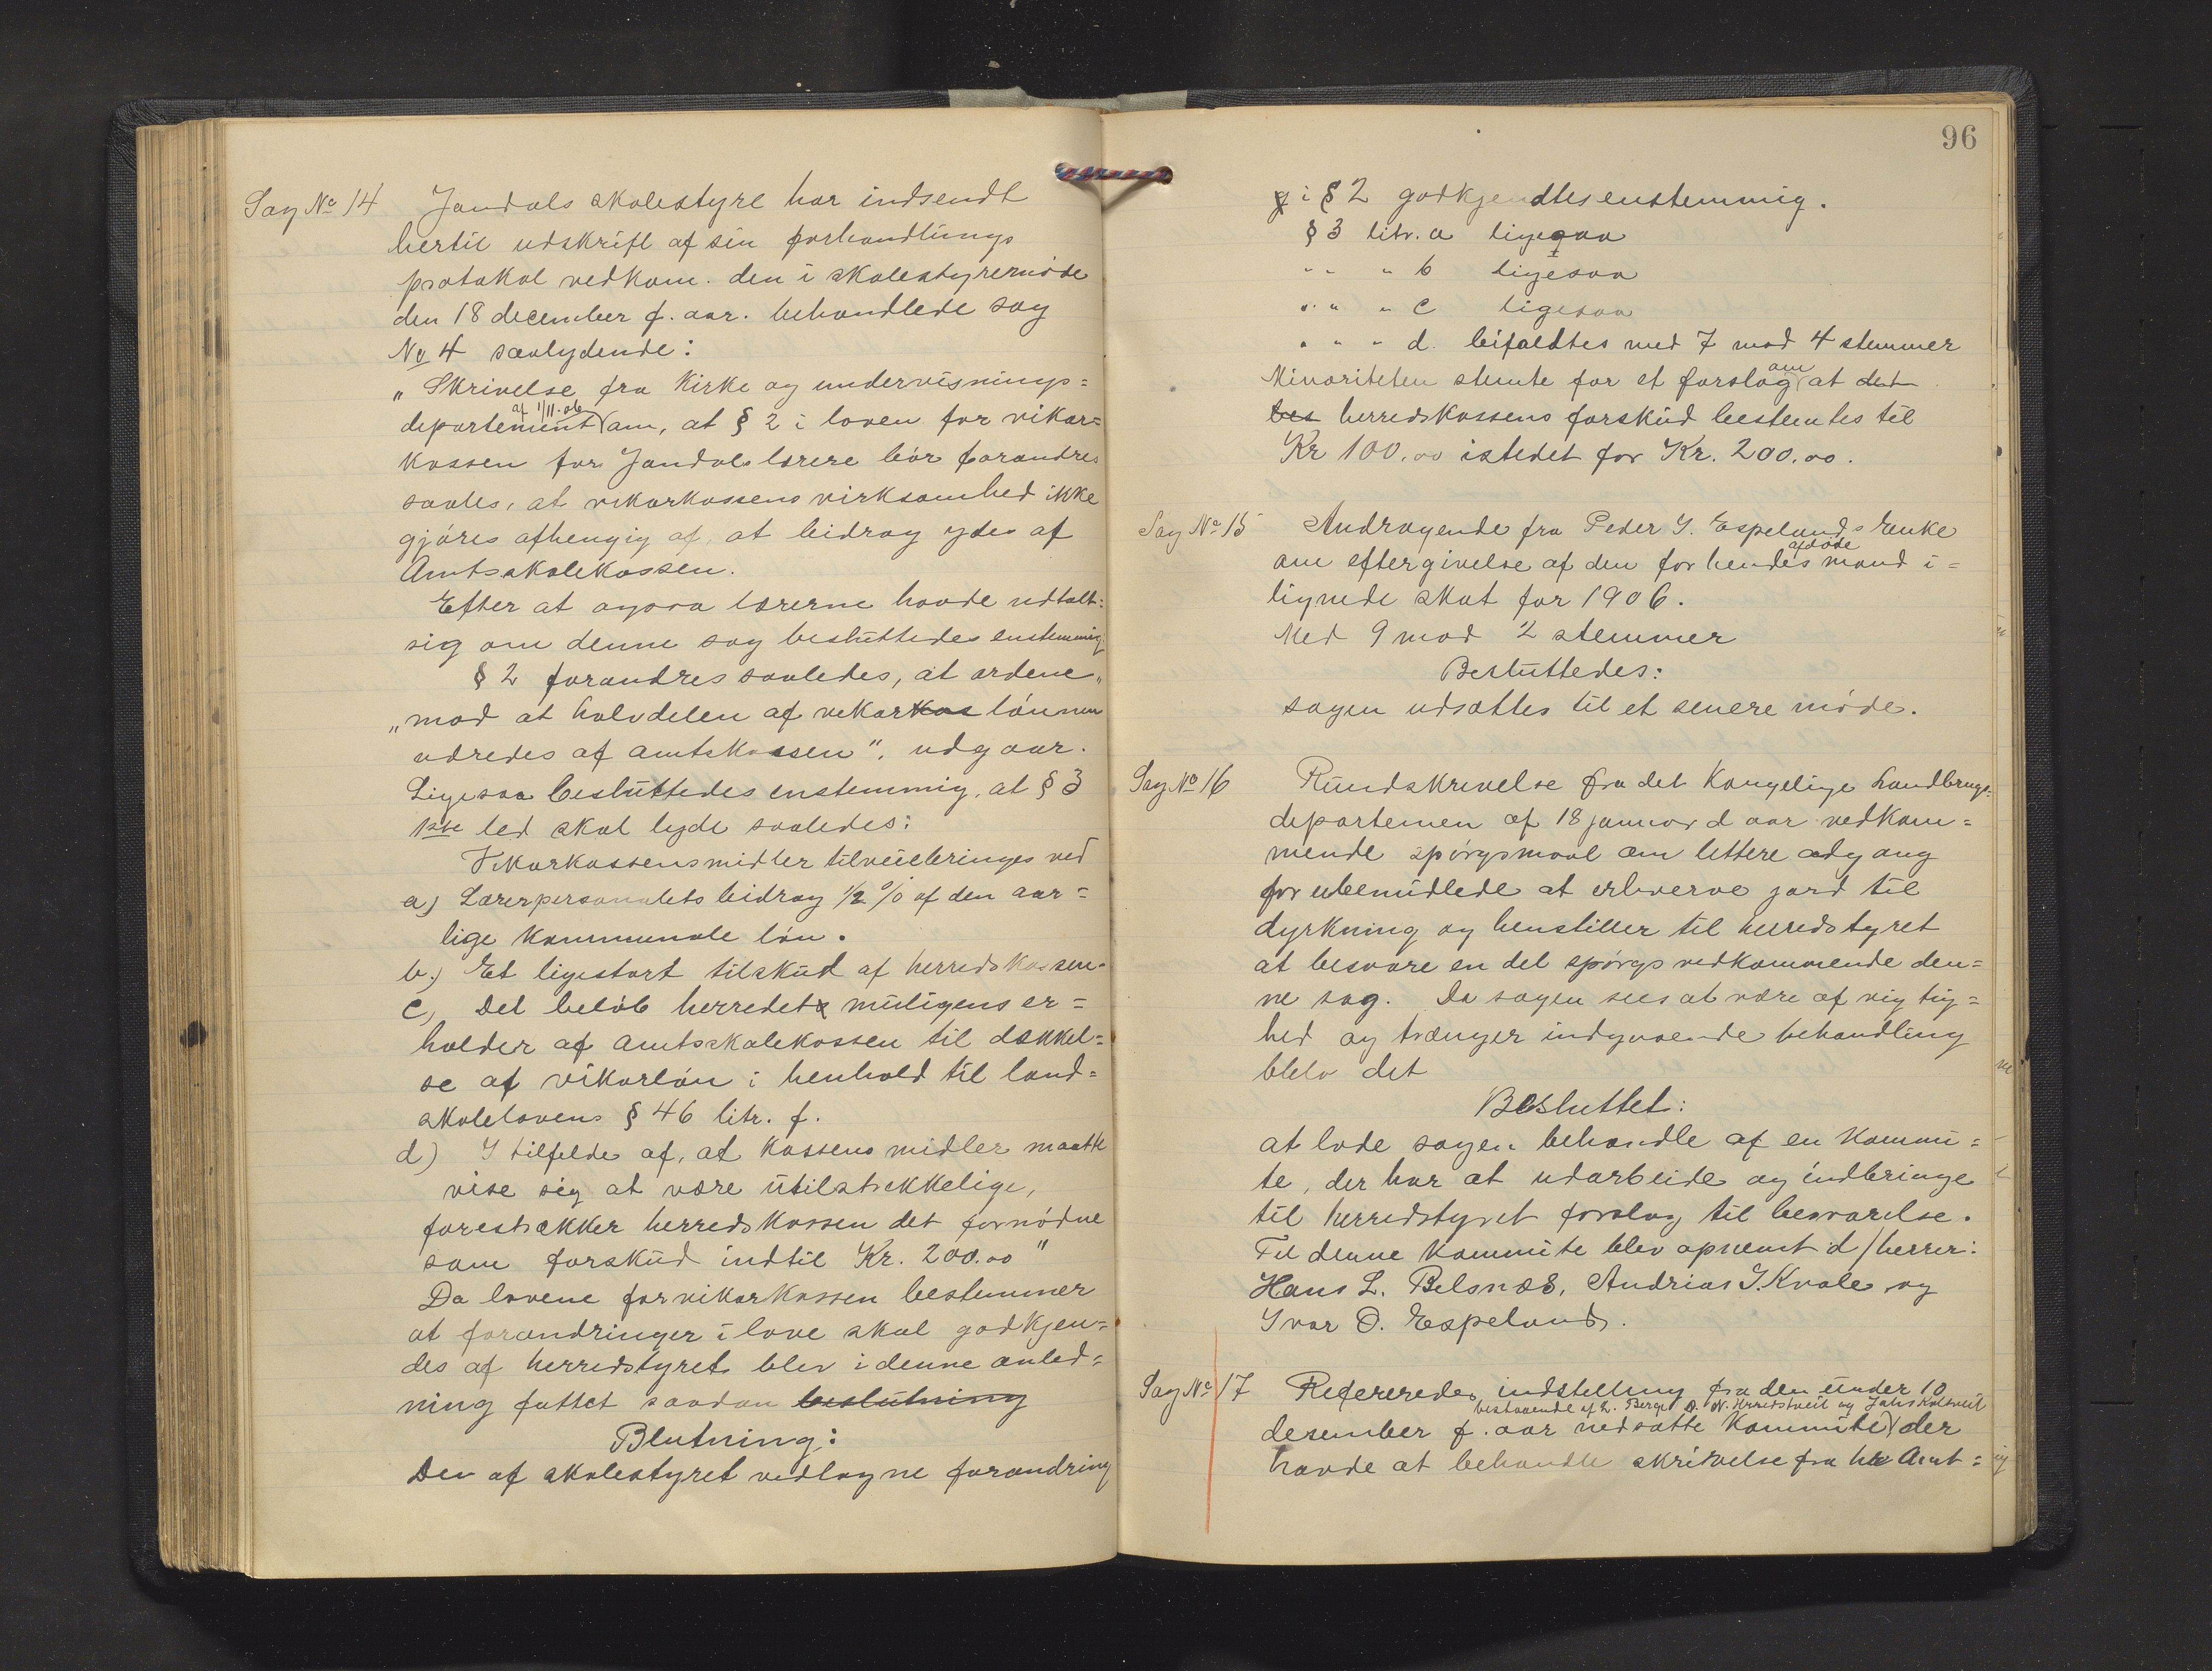 Sag No 14 Jondals skolestyre har indsendt
hertil udskrift af sin forhandlings
protokol vedkom. den i skolestyremøde
den 18 december f. aar. behandlede sag
No 4 saalydende:
„Skrivelse fra Kirke og undervisnings=
af 1/11.06
departement om, at § 2 i loven for vikar=
kassen for Jondals lærere bør forandres
saales, at vikarkassens virksomhed ikke
gjøres afhengig af, at bidrag ydes af
Amtsskolekassen.
Efter at ogsaa lærerne havde udtalt
sig om denne sag besluttedes enstemmig:
§ 2 forandres saaledes, at ordene„
„mod at halvdelen af vikarkas lønnen
udredes af amtskassen“, udgaar.
Ligesaa besluttedes enstemmig, at § 3
1ste led skal lyde saaledes:
Vikarkassens midler tilveiebringes ved
a) Lærerpersonalets bidrag 1/2 % af den aar=
lige kommunale løn.
b.) Et ligestort tilskud af herredskassen.
c, Det beløb herredets muligens er=
holder af amtsskolekassen til dækkel=
se af vikarløn i henhold til land=
skolelovens § 46 litr. f.
d) I tilfelde af, at kassens midler maatte
vise sig at være utilstrekkelige,
forestrækker herredskassen det fornødne
som forskud indtil Kr. 200.00 “
Da lovene for vikarkassen bestemmer
at forandringer i love skal godkjen=
des af herredstyret blev i denne anled=
ning fattet saadan beslutning
Blutning:
Den af skolestyret vedtagne forandring
96
g i § 2 godkjendtes enstemmig.
§ 3 litr. a ligesaa
" " " b ligesaa
" " " c ligesaa
" " " d. bifaldtes med 7 mod 4 stemmer
om
Minoriteten stemte for et forslag at det
bes herredskassens forskud bestemtes til
Kr 100.00 istedet for Kr. 200.00.
Sag No 15 Andragende fra Peder I. Espelands Enke
afdøde
om eftergivelse af den for hendes mand i=
lignede skat for 1906.
Med 9 mod 2 stemmer
Besluttedes:
sagen udsættes til et senere møde.
Sag No 16 Rundskrivelse fra det Kongelige Landbrugs=
departemen af 18 januar d aar vedkom=
mende spørgsmaal om lettere adgang
for ubemidlede at erhverve jord til
dyrkning og henstiller til herredstyret
at besvare en del spørgs vedkommende den=
ne sag. Da sagen sees at være af vigtig=
hed og trænger indgaaende behandling
blev det
Besluttet:
at lade sagen behandle af en Kommi=
te, der har at udarbeide og indbringe
til herredstyret forslag til besvarelse.
Til denne Kommite blev opnemt d/herrer:
Hans L. Belsnæs, Andrias I. Kvale og
Ivar O. Espeland.
Sag No 17 Refereredes indstelling fra den under 10
bestaaende af L. Berge O. N. Herredstveit og Johs Kolltveit
desember f. aar nedsatte Kommite der
havde at behandle skrivelse fra hr Amt=